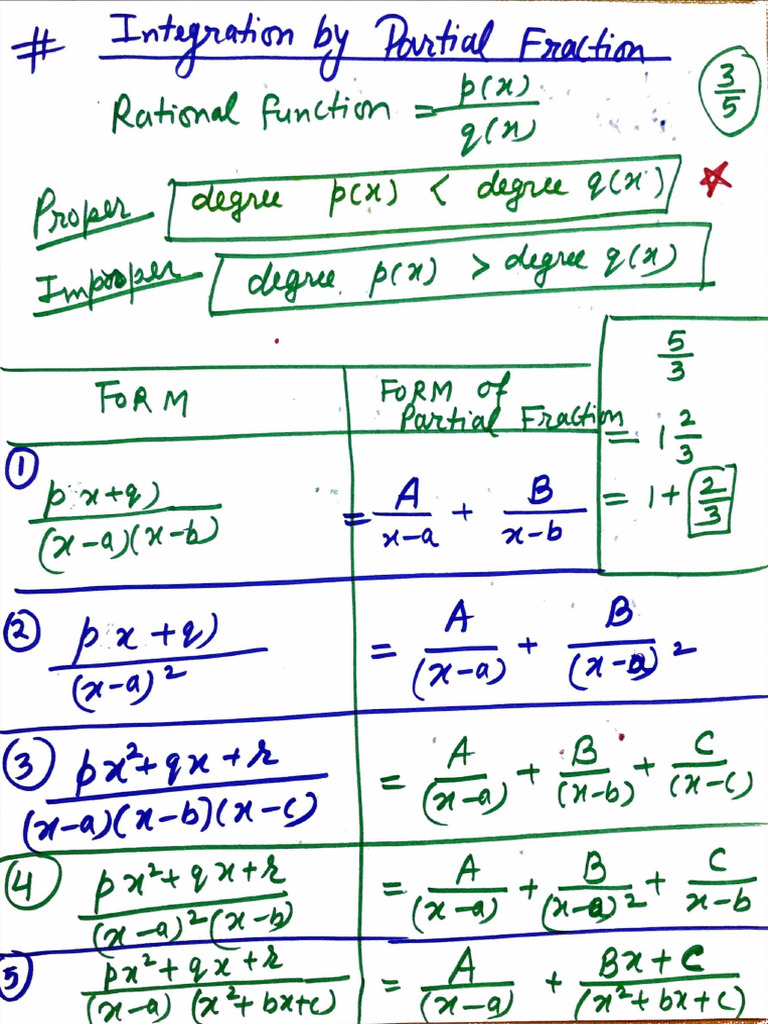 # Integration by Partial Fraction
Rational function = p(x)/q(x)
3/5
Proper degree p(x) < degree q(x) ☆
Improper degree p(x) > degree q(x)
5/3
= 1 2/3
= 1 + 2/3
FORM FORM of Partial Fraction
① px+q)/(x-a)(x-b) = A/x-a + B/x-b
② px+q)/(x-a)² = A/(x-a) + B/(x-a)²
③ px²+qx+r/(x-a)(x-b)(x-c) = A/(x-a) + B/(x-b) + C/(x-c)
④ px²+qx+r/(x-a)²(x-b) = A/(x-a) + B/(x-a)² + C/x-b
⑤ px²+qx+r/(x-a)(x²+bx+c) = A/(x-a) + Bx+C/(x²+bx+c)